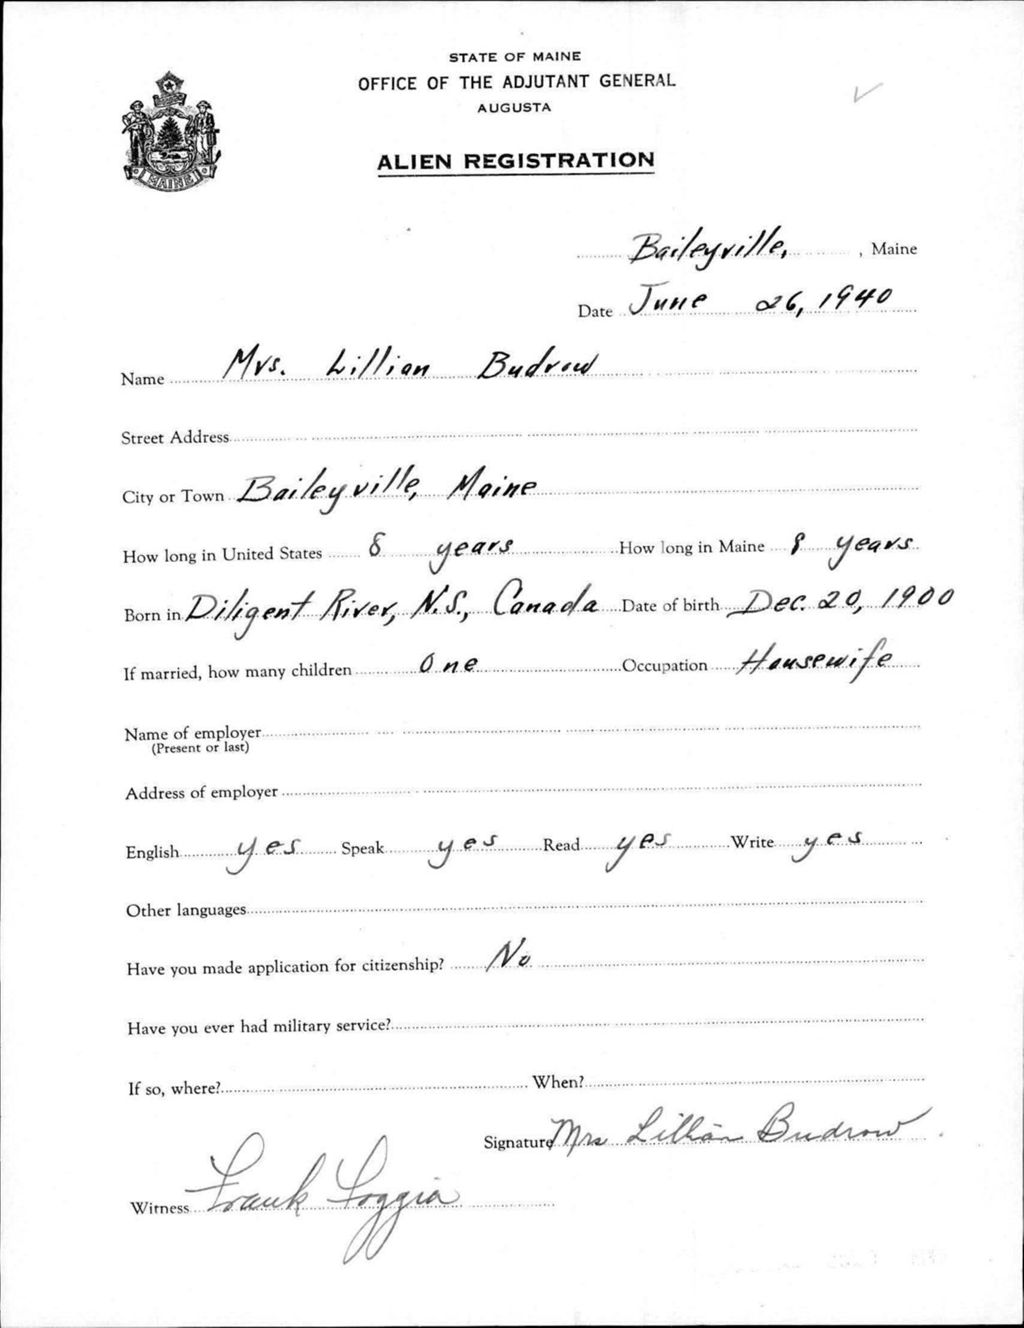 STATE OF MAINE
OFFICE OF THE ADJUTANT GENERAL
AUGUSTA
ALIEN REGISTRATION
MAINE
Baileyville, , Maine
Date June 26, 1940
Name Mrs. Lillian Budrow
Street Address
City or Town Baileyville, Maine
How long in United States 8 years How long in Maine 8 years
Born in Diligent River, N.S., Canada Date of birth Dec. 20, 1900
If married, how many children One Occupation Housewife
Name of employer
(Present or last)
Address of employer
English yes Speak yes Read yes Write yes
Other languages
Have you made application for citizenship? No
Have you ever had military service?
If so, where? When?
Signature Mrs Lillian Budrow
Witness Frank Foggia